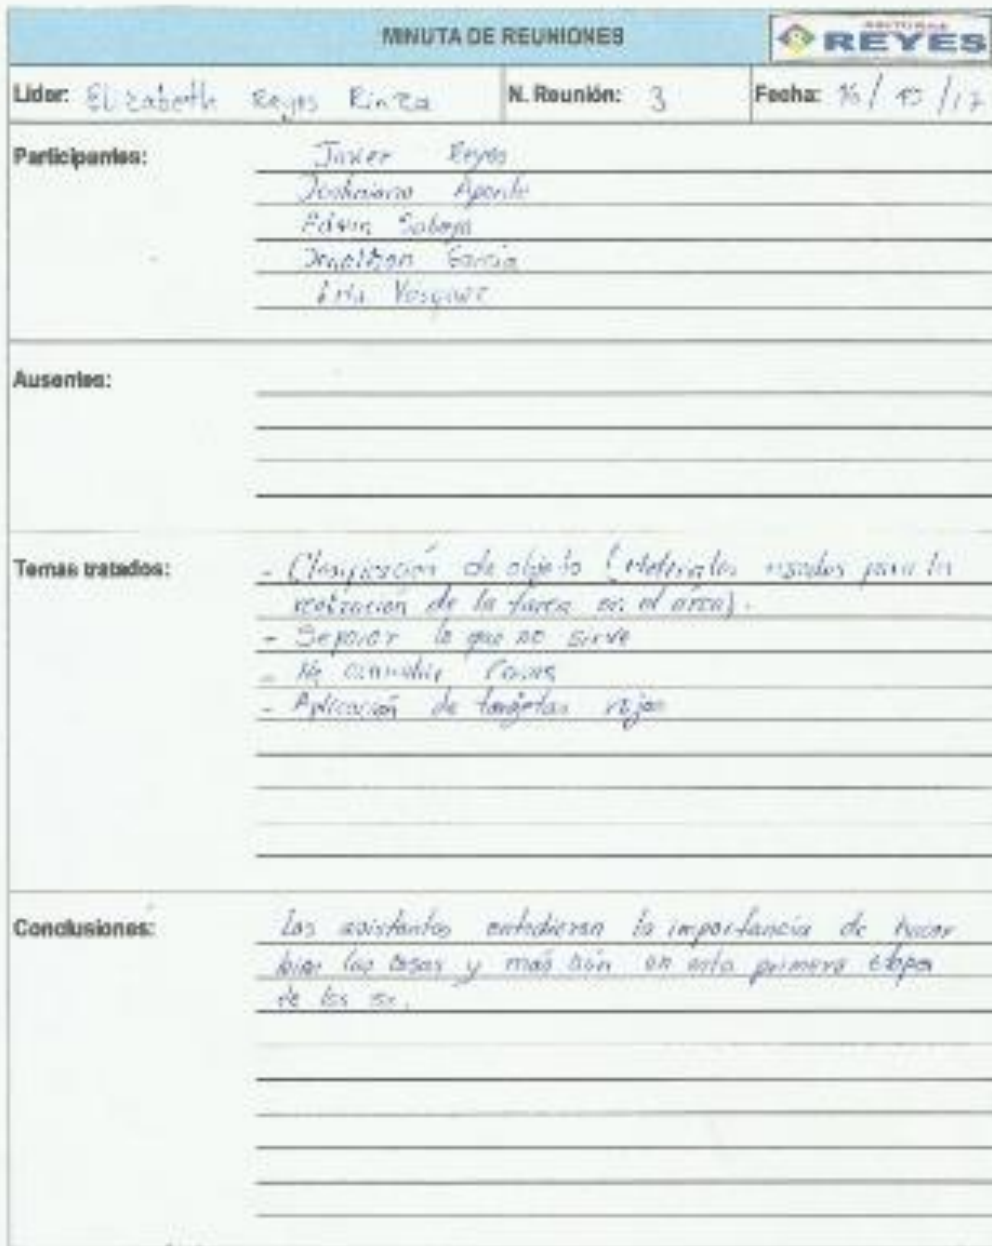 MINUTA DE REUNIONES
EDITORA REYES
Lider: Elizabeth Reyes Rinza N. Reunión: 3 Fecha: 16/ /17
Participantes: Javier Reyes
Aponte
Edwin
García
Vasquez
Ausentes:
Temas tratados: - Clasificación de objeto (Materiales usados para la
realización de la tarea en el area).
- Separar lo que no sirve
- No acumular cosas
- Aplicación de tarjetas rojas
Conclusiones: Los asistentes entedieron la importancia de hacer
bien las cosas y más aún en esta primera etapa
de las 5s.